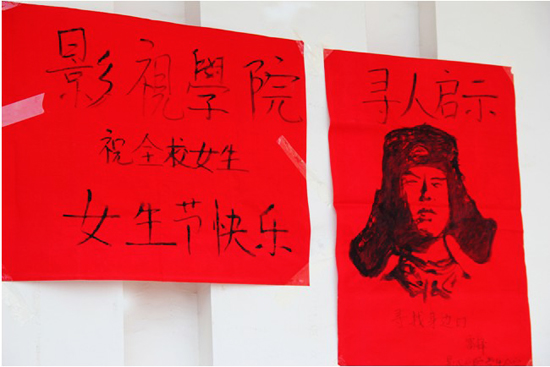 影視學院
祝全校女生
女生节快乐
寻人启示